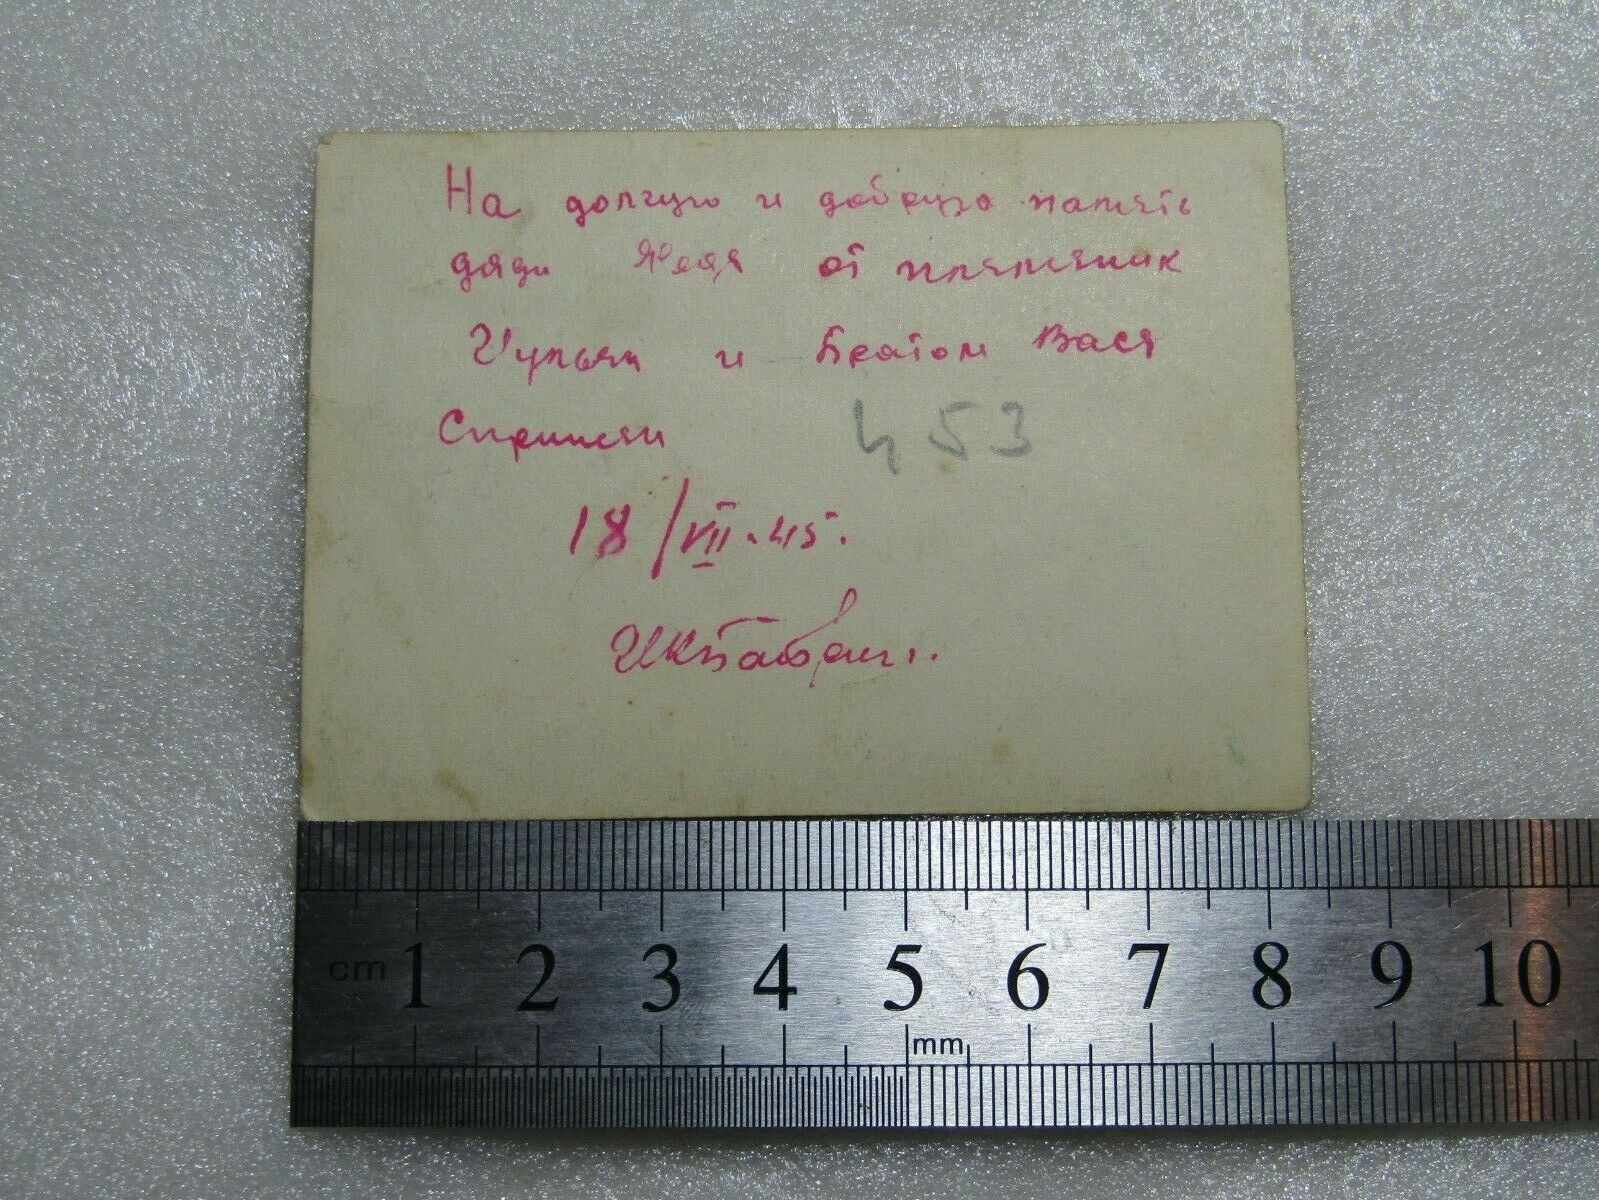 На долгую и добрую память
дяди от племяник
и Братом Вася
453
18/VII.45.
cm 1 2 3 4 5 6 7 8 9 10
mm